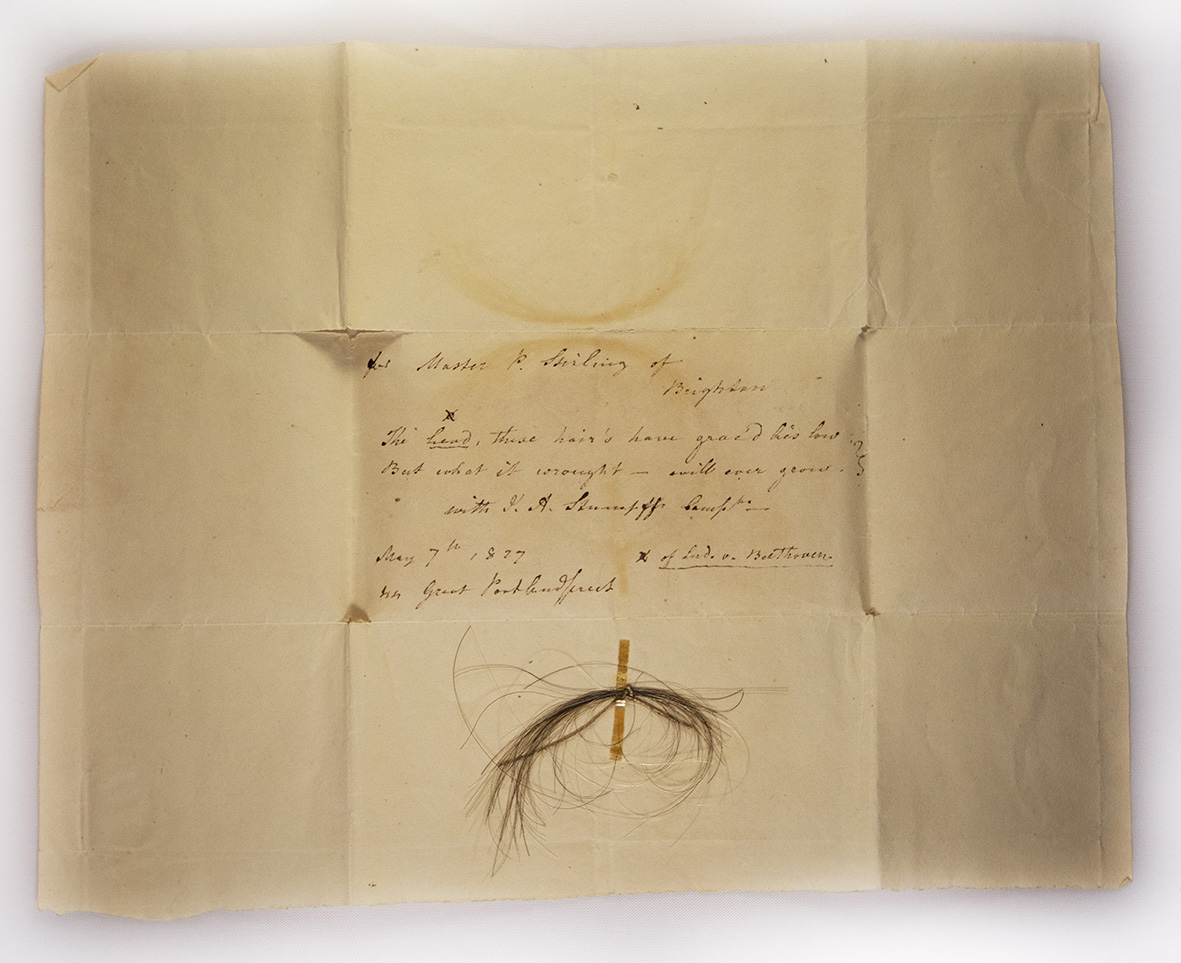 for Master P. Stirling of
Brighton
The head, these hair's have grac'd lies low
But what it wrought — will ever grow.
with J. A. Stumpffs Compts
May 7th 1827
of Lud. v. Beethoven.
Great Portlandstreet